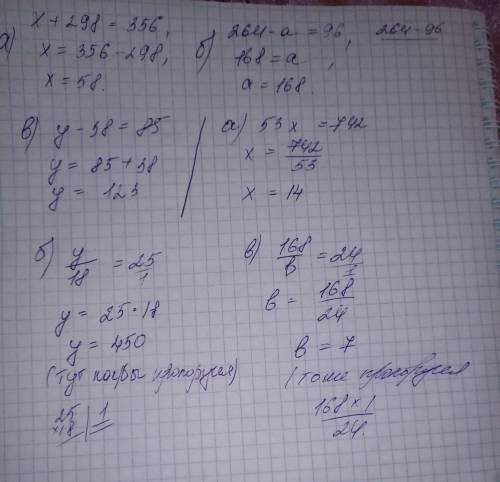 а) x + 298 = 356,
x = 356 - 298,
x = 58.
б) 264 - a = 96, 264 - 96
168 = a,
a = 168.
в) y - 38 = 85
y = 85 + 38
y = 123
а) 53x = 742
x = 742/53
x = 14
б) y/18 = 25/1
y = 25 * 18
y = 450
(тут как бы
25 | 1
*18
в) 168/в = 24/1
в = 168/24
в = 7
(тоже
168 × 1
24.